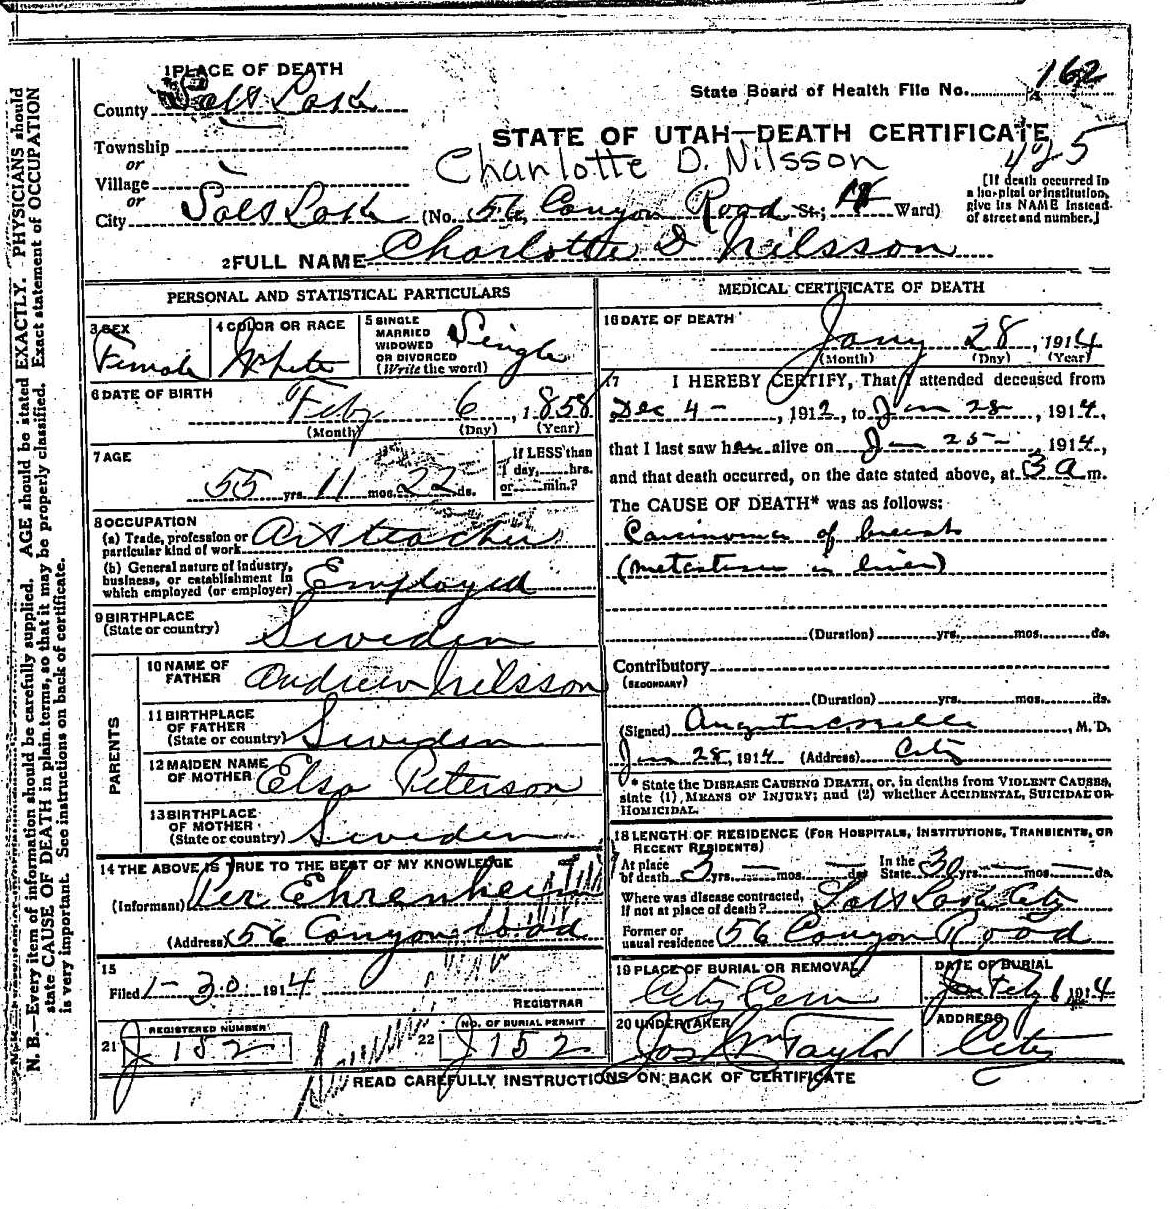 1 PLACE OF DEATH
County Salt Lake
State Board of Health File No. 162
STATE OF UTAH—DEATH CERTIFICATE
425
Township
or
Village
or
Charlotte D. Nilsson
[If death occurred in a hospital or institution, give its NAME instead of street and number.]
City Salt Lake (No. 56 Canyon Road St.; Ward)
2 FULL NAME Charlotte D Nilsson
PERSONAL AND STATISTICAL PARTICULARS
3 SEX
Female
4 COLOR OR RACE
White
5 SINGLE
MARRIED
WIDOWED
OR DIVORCED
(Write the word)
Single
6 DATE OF BIRTH
Feby 6, 1858
(Month) (Day) (Year)
7 AGE
55 yrs. 11 mos. 22 ds.
If LESS than
1 day, hrs.
or min.?
8 OCCUPATION
(a) Trade, profession or
particular kind of work Art teacher
(b) General nature of industry,
business, or establishment in
which employed (or employer) Employed
9 BIRTHPLACE
(State or country) Sweden
PARENTS
10 NAME OF
FATHER Andrew Nilsson
11 BIRTHPLACE
OF FATHER
(State or country) Sweden
12 MAIDEN NAME
OF MOTHER Elsa Peterson
13 BIRTHPLACE
OF MOTHER
(State or country) Sweden
14 THE ABOVE IS TRUE TO THE BEST OF MY KNOWLEDGE
(Informant) Per Ehrenheim
(Address) 56 Canyon Road
15
Filed 1-30 1914
REGISTRAR
REGISTERED NUMBER
21 J 152
NO. OF BURIAL PERMIT
22 J 152
MEDICAL CERTIFICATE OF DEATH
16 DATE OF DEATH
Jany 28, 1914
(Month) (Day) (Year)
17 I HEREBY CERTIFY, That I attended deceased from
Dec 4 -, 1912, to Jan 28, 1914,
that I last saw her alive on Jan 25 - 1914,
and that death occurred, on the date stated above, at 3 a m.
The CAUSE OF DEATH* was as follows:
Carcinoma of breast
(metastases in liver)
(Duration) yrs. mos. ds.
Contributory
(SECONDARY)
(Duration) yrs. mos. ds.
(Signed) , M. D.
Jan 28, 1914 (Address) City
* State the DISEASE CAUSING DEATH, or, in deaths from VIOLENT CAUSES,
state (1) MEANS OF INJURY; and (2) whether ACCIDENTAL, SUICIDAL OR
HOMICIDAL.
18 LENGTH OF RESIDENCE (FOR HOSPITALS, INSTITUTIONS, TRANSIENTS, OR
RECENT RESIDENTS)
At place
of death 3 yrs. — mos. — ds.
In the
State 30 yrs. — mos. — ds.
Where was disease contracted,
If not at place of death? Salt Lake City
Former or
usual residence 56 Canyon Road
19 PLACE OF BURIAL OR REMOVAL
City Cem
DATE OF BURIAL
Feby 1 1914
20 UNDERTAKER
Jos Wm Taylor
ADDRESS
City
READ CAREFULLY INSTRUCTIONS ON BACK OF CERTIFICATE
N. B.—Every item of information should be carefully supplied. AGE should be stated EXACTLY. PHYSICIANS should
state CAUSE OF DEATH in plain terms, so that it may be properly classified. Exact statement of OCCUPATION
is very important. See instructions on back of certificate.